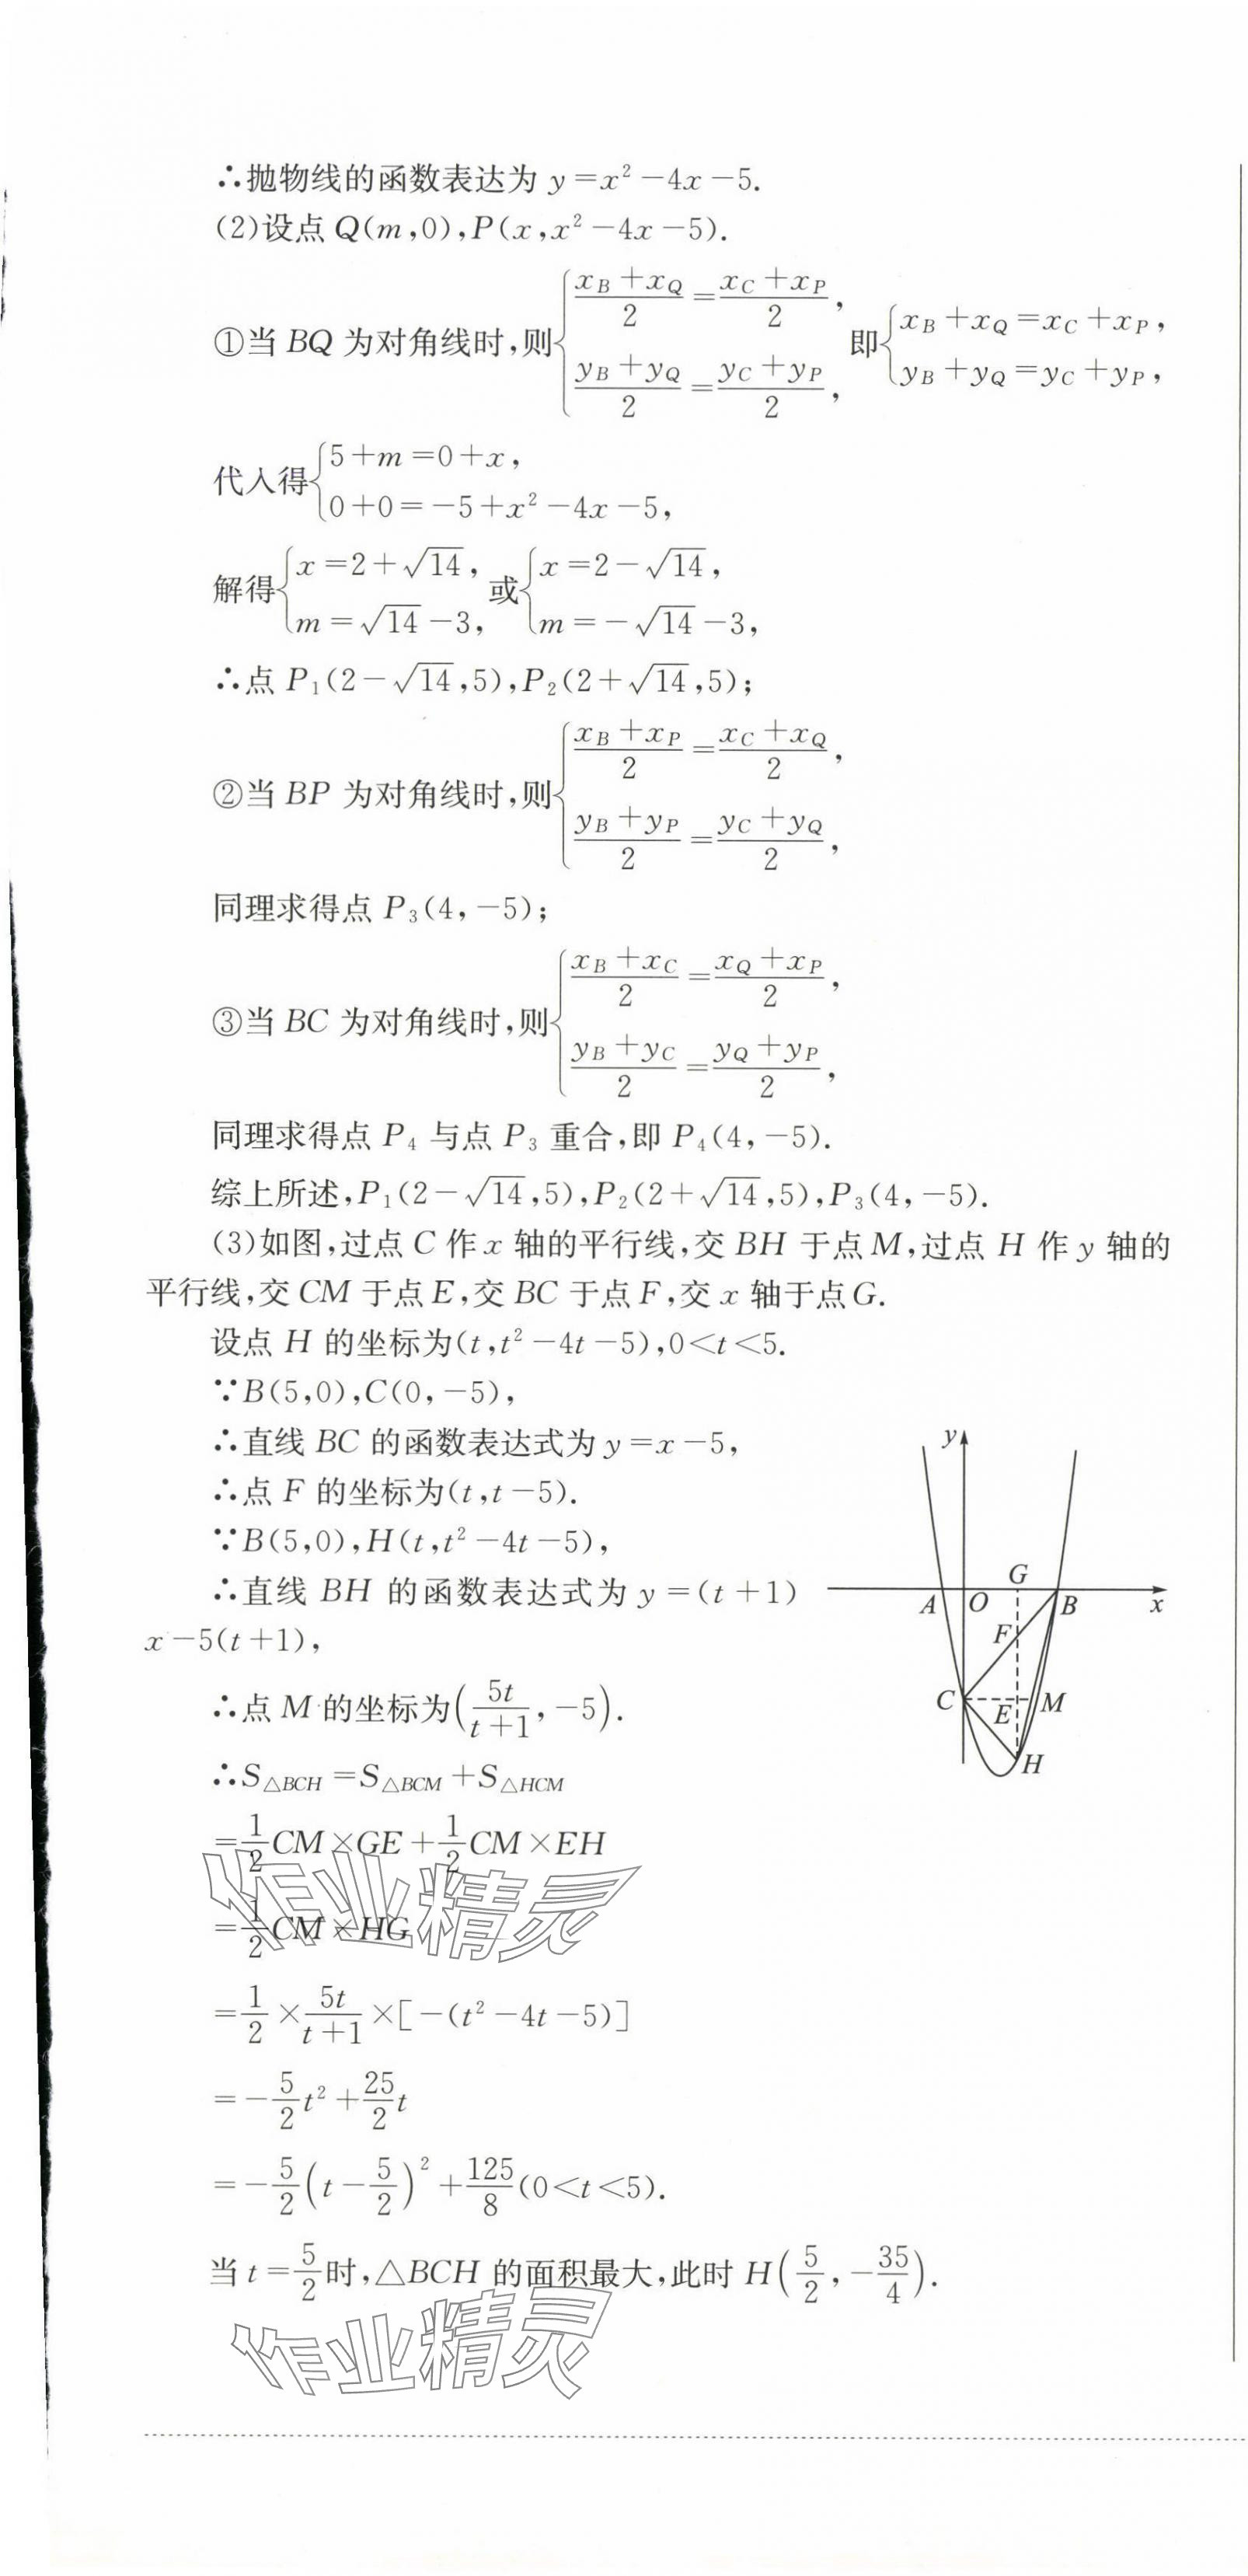 ∴抛物线的函数表达为 y=x²-4x-5.
(2)设点 Q(m,0),P(x,x²-4x-5).
①当 BQ 为对角线时,则{(x_B+x_Q)/2=(x_C+x_P)/2, (y_B+y_Q)/2=(y_C+y_P)/2, 即{x_B+x_Q=x_C+x_P, y_B+y_Q=y_C+y_P,
代入得{5+m=0+x, 0+0=-5+x²-4x-5,
解得{x=2+√14, m=√14-3, 或{x=2-√14, m=-√14-3,
∴点 P₁(2-√14,5),P₂(2+√14,5);
②当 BP 为对角线时,则{(x_B+x_P)/2=(x_C+x_Q)/2, (y_B+y_P)/2=(y_C+y_Q)/2,
同理求得点 P₃(4,-5);
③当 BC 为对角线时,则{(x_B+x_C)/2=(x_Q+x_P)/2, (y_B+y_C)/2=(y_Q+y_P)/2,
同理求得点 P₄ 与点 P₃ 重合,即 P₄(4,-5).
综上所述,P₁(2-√14,5),P₂(2+√14,5),P₃(4,-5).
(3)如图,过点 C 作 x 轴的平行线,交 BH 于点 M,过点 H 作 y 轴的
平行线,交 CM 于点 E,交 BC 于点 F,交 x 轴于点 G.
设点 H 的坐标为(t,t²-4t-5),0<t<5.
∵B(5,0),C(0,-5),
∴直线 BC 的函数表达式为 y=x-5,
∴点 F 的坐标为(t,t-5).
∵B(5,0),H(t,t²-4t-5),
∴直线 BH 的函数表达式为 y=(t+1)
x-5(t+1),
∴点 M 的坐标为(5t/(t+1),-5).
∴S△BCH=S△BCM+S△HCM
=1/2CM×GE+1/2CM×EH
=1/2CM×HG
=1/2×5t/(t+1)×[-(t²-4t-5)]
=-5/2t²+25/2t
=-5/2(t-5/2)²+125/8(0<t<5).
当 t=5/2时,△BCH 的面积最大,此时 H(5/2,-35/4).
y
G
A O B x
F
C E M
H
作业精灵
作业精灵